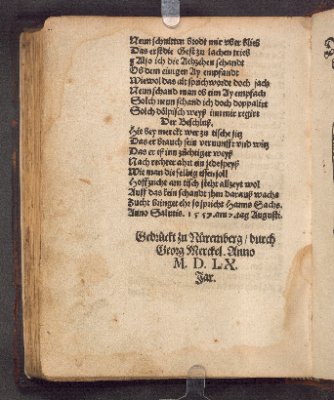 Neun schnitten brodt mir vber blieb
Das erst die Gest zu lachen trieb
Also ich die Achzehen schandt
Ob dem einigen Ay empfandt
Wiewol das alt sprichworde doch jach
Neun schand man ob eim Ay empfach
Solch neun schand ich doch doppalirt
Solch dölpisch weyß inn mir regirt
Der Beschluß.
Hie bey merckt wer zu tische sitz
Das er brauch sein vernunfft vnd witz
Das er eß inn züchtiger weyß
Nach rechter ahrt ein jede speyß
Wie man die selbig essen soll
Hoffzucht am tisch steht allzeyt wol
Auff das kein schandt jhm darauß wachs
Zucht bringt ehr so spricht Hanns Sachs.
Anno Salutis. 1557. am 7. tag Augusti.
Gedrückt zu Nüremberg / durch
Georg Merckel. Anno
M. D. LX.
Jar.